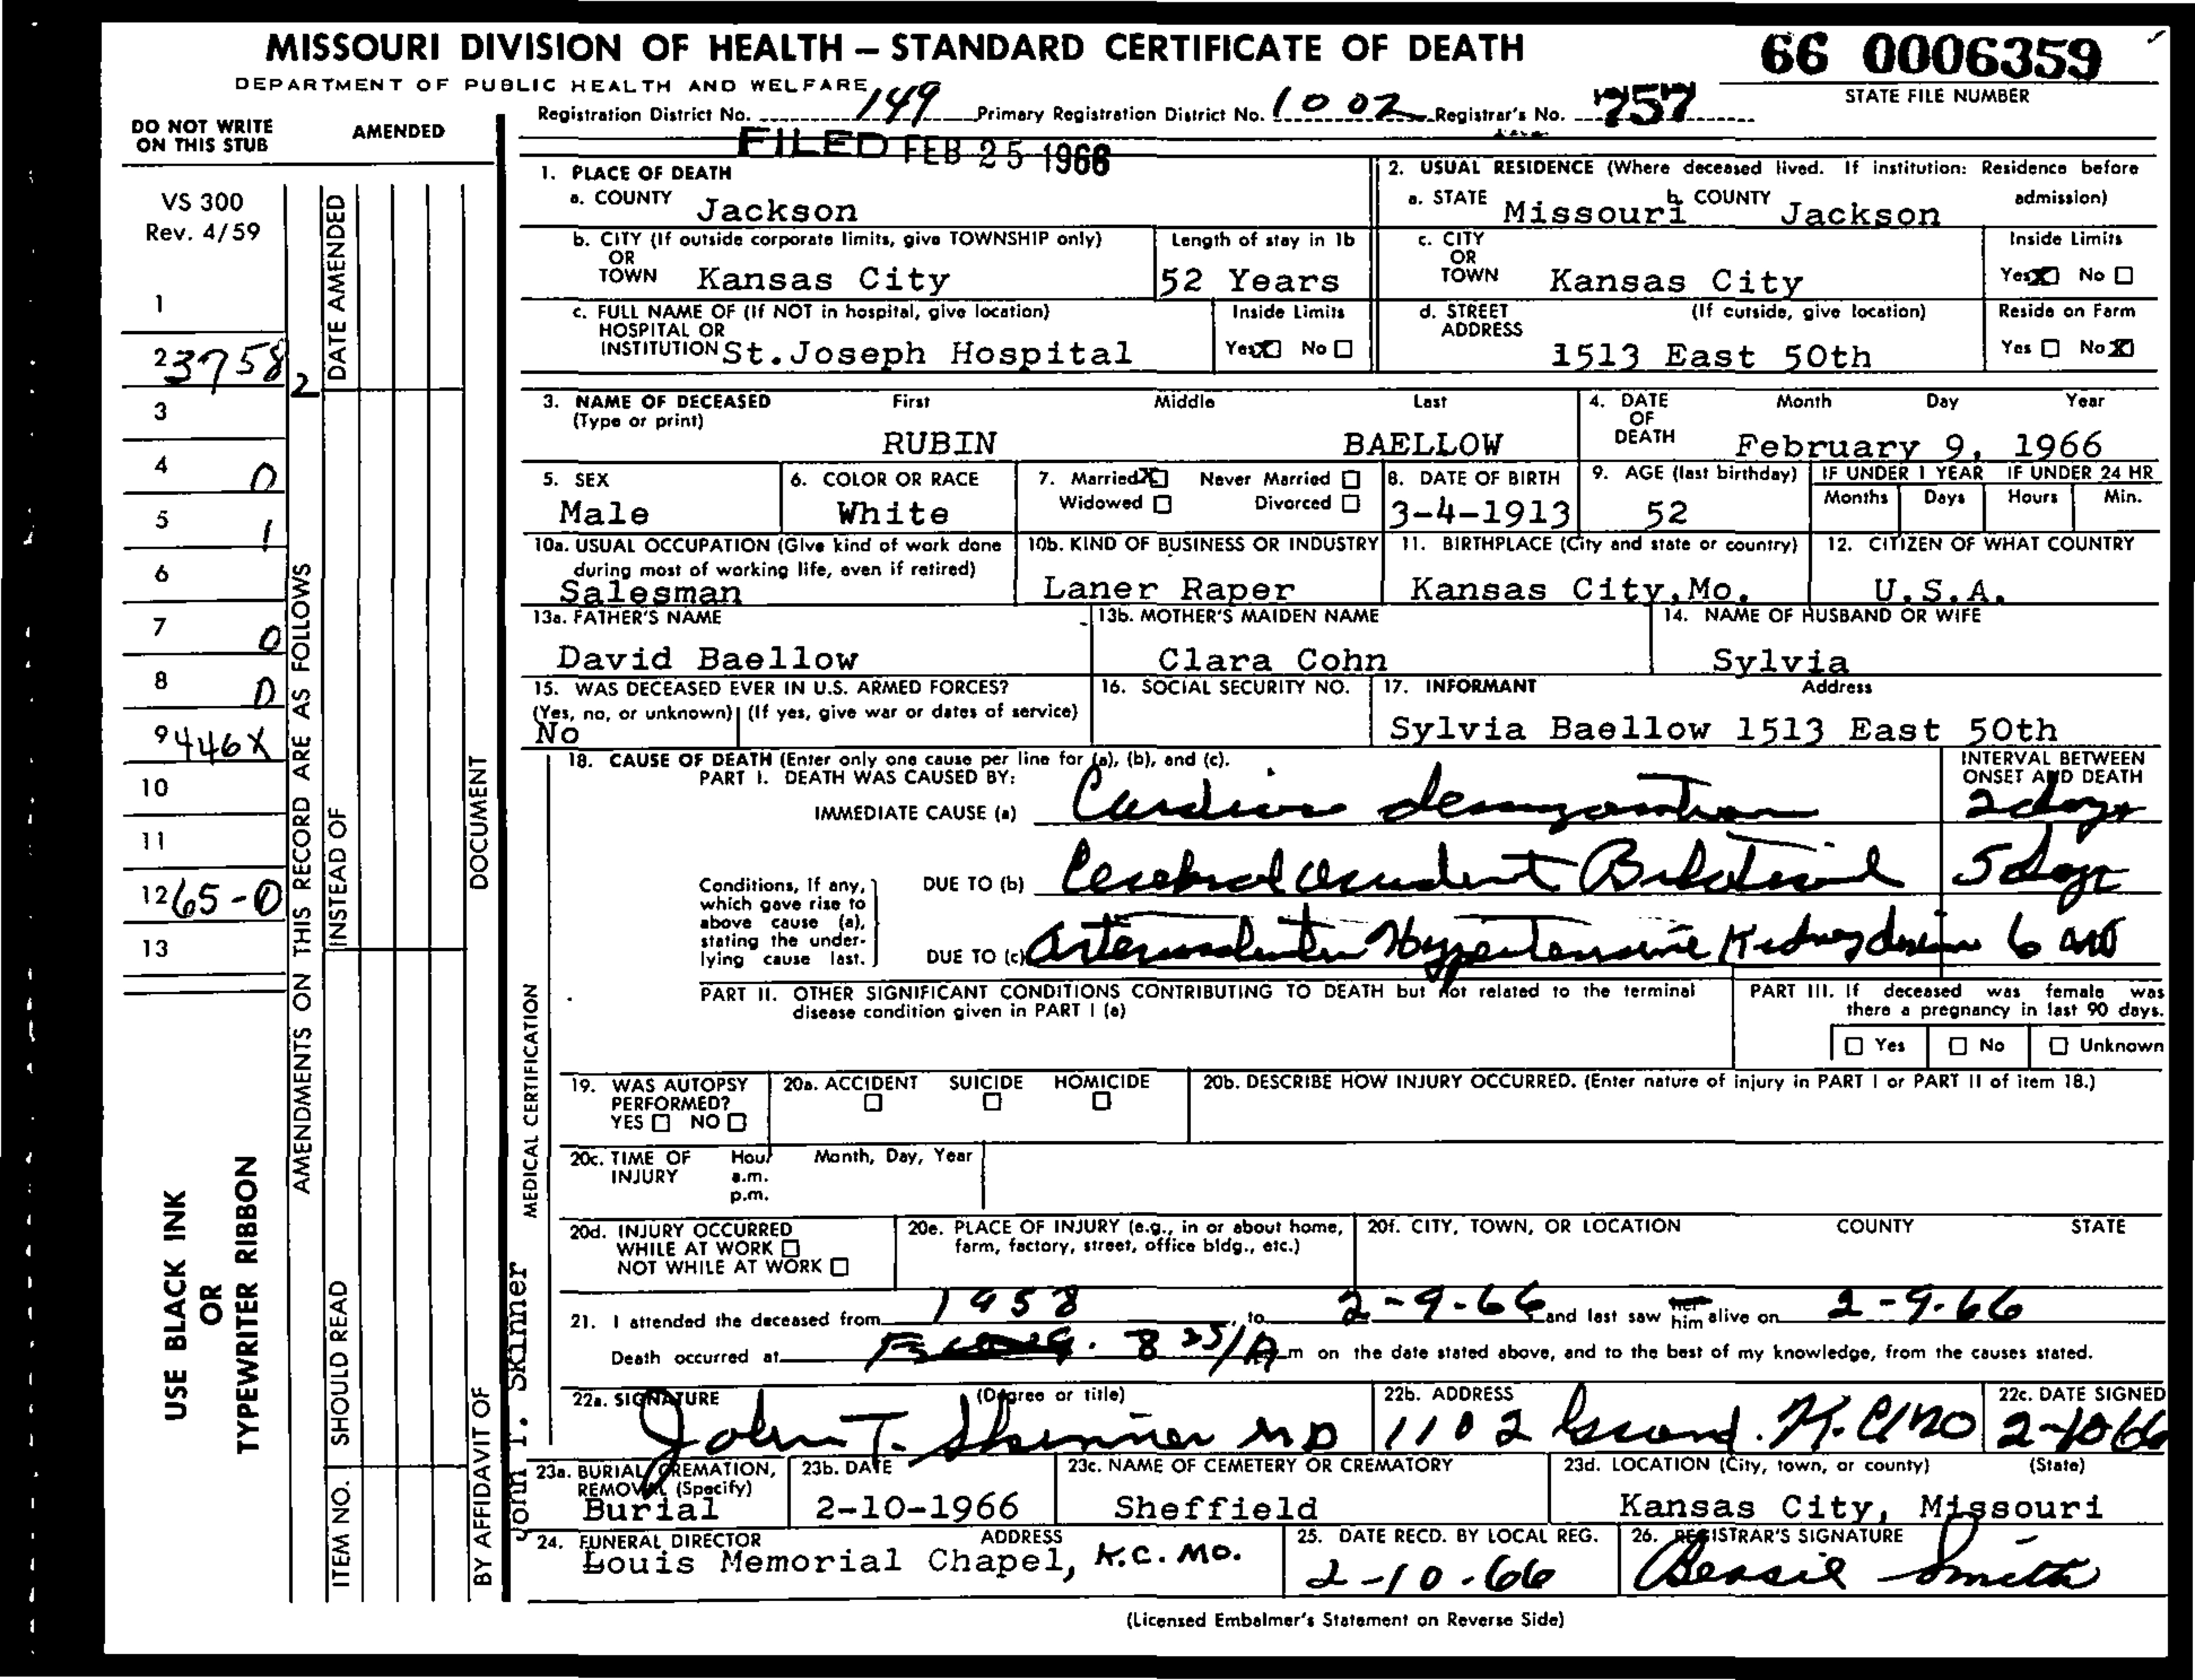 MISSOURI DIVISION OF HEALTH — STANDARD CERTIFICATE OF DEATH
66 0006359
DEPARTMENT OF PUBLIC HEALTH AND WELFARE
STATE FILE NUMBER
Registration District No. 149 Primary Registration District No. 1002 Registrar's No. 757
DO NOT WRITE ON THIS STUB
AMENDED
FILED FEB 25 1966
VS 300
Rev. 4/59
1
2 3758
2
3
4 0
5 1
6
7 0
8 0
9 446X
10
11
12 65-0
13
USE BLACK INK
OR
TYPEWRITER RIBBON
AMENDMENTS ON THIS RECORD ARE AS FOLLOWS
DATE AMENDED
INSTEAD OF
SHOULD READ
ITEM NO.
DOCUMENT
BY AFFIDAVIT OF
MEDICAL CERTIFICATION
John T. Skinner
1. PLACE OF DEATH
a. COUNTY Jackson
b. CITY (If outside corporate limits, give TOWNSHIP only)
OR
TOWN Kansas City
Length of stay in 1b
52 Years
c. FULL NAME OF (If NOT in hospital, give location)
HOSPITAL OR
INSTITUTION St.Joseph Hospital
Inside Limits
Yes X No
2. USUAL RESIDENCE (Where deceased lived. If institution: Residence before admission)
a. STATE Missouri b. COUNTY Jackson
c. CITY
OR
TOWN Kansas City
Inside Limits
Yes X No
d. STREET ADDRESS (If cutside, give location)
1513 East 50th
Reside on Farm
Yes No X
3. NAME OF DECEASED First Middle Last
(Type or print)
RUBIN BAELLOW
4. DATE OF DEATH Month Day Year
February 9, 1966
5. SEX
Male
6. COLOR OR RACE
White
7. Married X Never Married
Widowed Divorced
8. DATE OF BIRTH
3-4-1913
9. AGE (last birthday)
52
IF UNDER 1 YEAR
Months Days
IF UNDER 24 HR
Hours Min.
10a. USUAL OCCUPATION (Give kind of work done
during most of working life, even if retired)
Salesman
10b. KIND OF BUSINESS OR INDUSTRY
Laner Raper
11. BIRTHPLACE (City and state or country)
Kansas City,Mo.
12. CITIZEN OF WHAT COUNTRY
U.S.A.
13a. FATHER'S NAME
David Baellow
13b. MOTHER'S MAIDEN NAME
Clara Cohn
14. NAME OF HUSBAND OR WIFE
Sylvia
15. WAS DECEASED EVER IN U.S. ARMED FORCES?
(Yes, no, or unknown) (If yes, give war or dates of service)
No
16. SOCIAL SECURITY NO.
17. INFORMANT Address
Sylvia Baellow 1513 East 50th
18. CAUSE OF DEATH (Enter only one cause per line for (a), (b), and (c).
PART I. DEATH WAS CAUSED BY:
INTERVAL BETWEEN ONSET AND DEATH
IMMEDIATE CAUSE (a) 2 days
Conditions, if any,
which gave rise to
above cause (a),
stating the under-
lying cause last.
DUE TO (b) Cerebral accident Bilateral 5 days
DUE TO (c) Hypertensive Kidney disease 6
PART II. OTHER SIGNIFICANT CONDITIONS CONTRIBUTING TO DEATH but not related to the terminal
disease condition given in PART I (a)
PART III. If deceased was female was
there a pregnancy in last 90 days.
Yes No Unknown
19. WAS AUTOPSY PERFORMED?
YES NO
20a. ACCIDENT SUICIDE HOMICIDE
20b. DESCRIBE HOW INJURY OCCURRED. (Enter nature of injury in PART I or PART II of item 18.)
20c. TIME OF INJURY Hour a.m. p.m. Month, Day, Year
20d. INJURY OCCURRED
WHILE AT WORK
NOT WHILE AT WORK
20e. PLACE OF INJURY (e.g., in or about home,
farm, factory, street, office bldg., etc.)
20f. CITY, TOWN, OR LOCATION COUNTY STATE
21. I attended the deceased from 1958, to 2-9-66 and last saw her him alive on 2-9-66
Death occurred at 8 25/A m on the date stated above, and to the best of my knowledge, from the causes stated.
22a. SIGNATURE (Degree or title)
John T. Skinner MD
22b. ADDRESS
1102 Grand. K.C. MO
22c. DATE SIGNED
2-10-66
23a. BURIAL, CREMATION, REMOVAL (Specify)
Burial
23b. DATE
2-10-1966
23c. NAME OF CEMETERY OR CREMATORY
Sheffield
23d. LOCATION (City, town, or county) (State)
Kansas City, Missouri
24. FUNERAL DIRECTOR ADDRESS
Louis Memorial Chapel, K.C. MO.
25. DATE RECD. BY LOCAL REG.
2-10-66
26. REGISTRAR'S SIGNATURE
Bessie Smith
(Licensed Embalmer's Statement on Reverse Side)